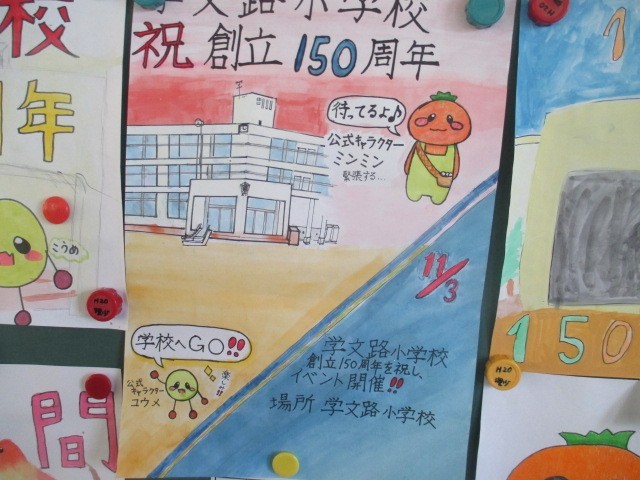 学文路小学校
祝 創立 150 周年
待ってるよ♪
公式キャラクター
ミンミン
緊張する…
11/3
学校へGO!!
楽しい!!
公式
キャラクター
コウメ
学文路小学校
創立150周年を祝し、
イベント開催!!
場所 学文路小学校
校
周年
こうめ
間
1
150
H20
H20